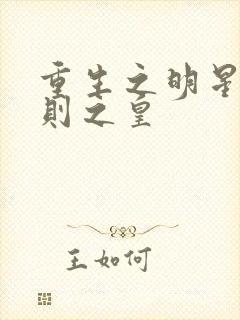 重生之明星
則之皇
王如何